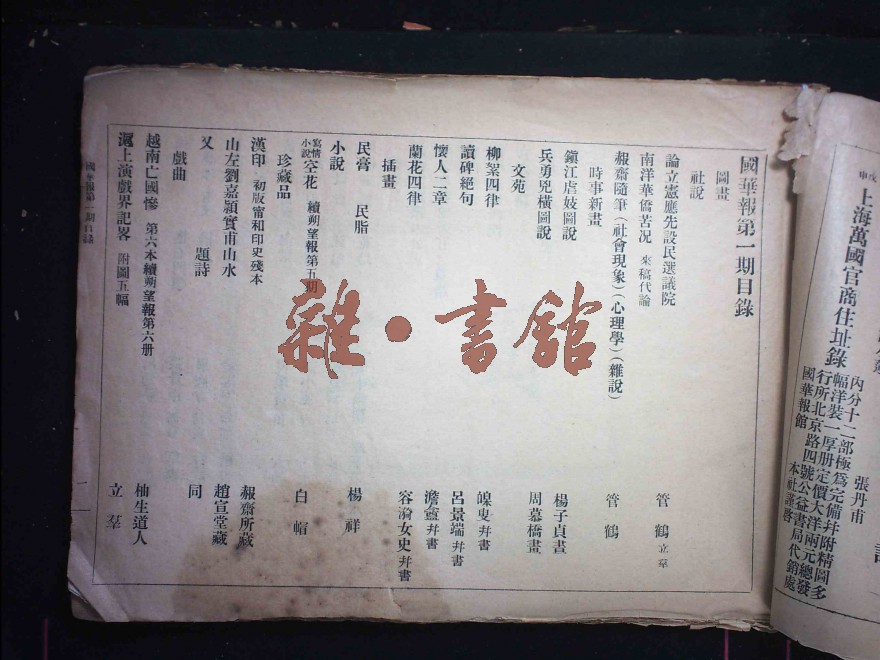 國華報第一期目錄
圖畫
社說
論立憲應先設民選議院 管鶴立羣
南洋華僑苦況 來稿代論
赧齋隨筆（社會現象）（心理學）（雜說） 管鶴
時事新畫
鎮江虐妓圖說 楊子貞畫
兵勇兇橫圖說 周慕橋畫
文苑
柳絮四律 皥叟幷書
讀碑絕句 呂景端幷書
懷人二章 澹盦幷書
蘭花四律 容漪女史幷書
插畫
民膏 民脂 楊祥
小說
寫情小說 空花 續朔望報第五期 白帽
珍藏品
漢印 初版甯和印史殘本 赧齋所藏
山左劉嘉穎實甫山水 趙宣堂藏
又 題詩 同
戲曲
越南亡國慘 第六本續朔望報第六册 柚生道人
滬上演戲界記畧 附圖五幅 立羣
國華報第一期目錄
一
雜·書館
上海萬國官商住址錄
張丹甫
內分十二部極爲完備幷附精圖多
幅洋裝一厚册定價大洋兩元總發
行所北京路四號公益書局代銷處
國華報館 本社謹啓